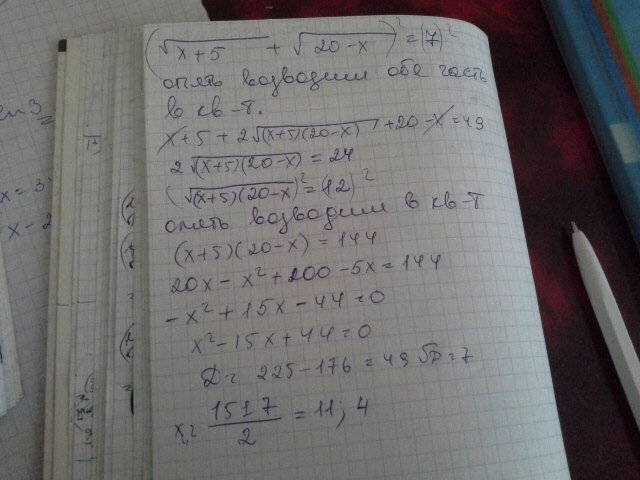 (√(x+5) + √(20-x))² = (7)²
опять возводим обе часть
в кв-т.
x+5 + 2√((x+5)(20-x)) + 20-x = 49
2√((x+5)(20-x)) = 24
(√((x+5)(20-x)))² = (12)²
опять возводим в кв-т
(x+5)(20-x) = 144
20x - x² + 200 - 5x = 144
-x² + 15x - 44 = 0
x² - 15x + 44 = 0
D = 225 - 176 = 49 √D = 7
x₁,₂ = (15±7)/2 = 11; 4
x = 3
x - 2